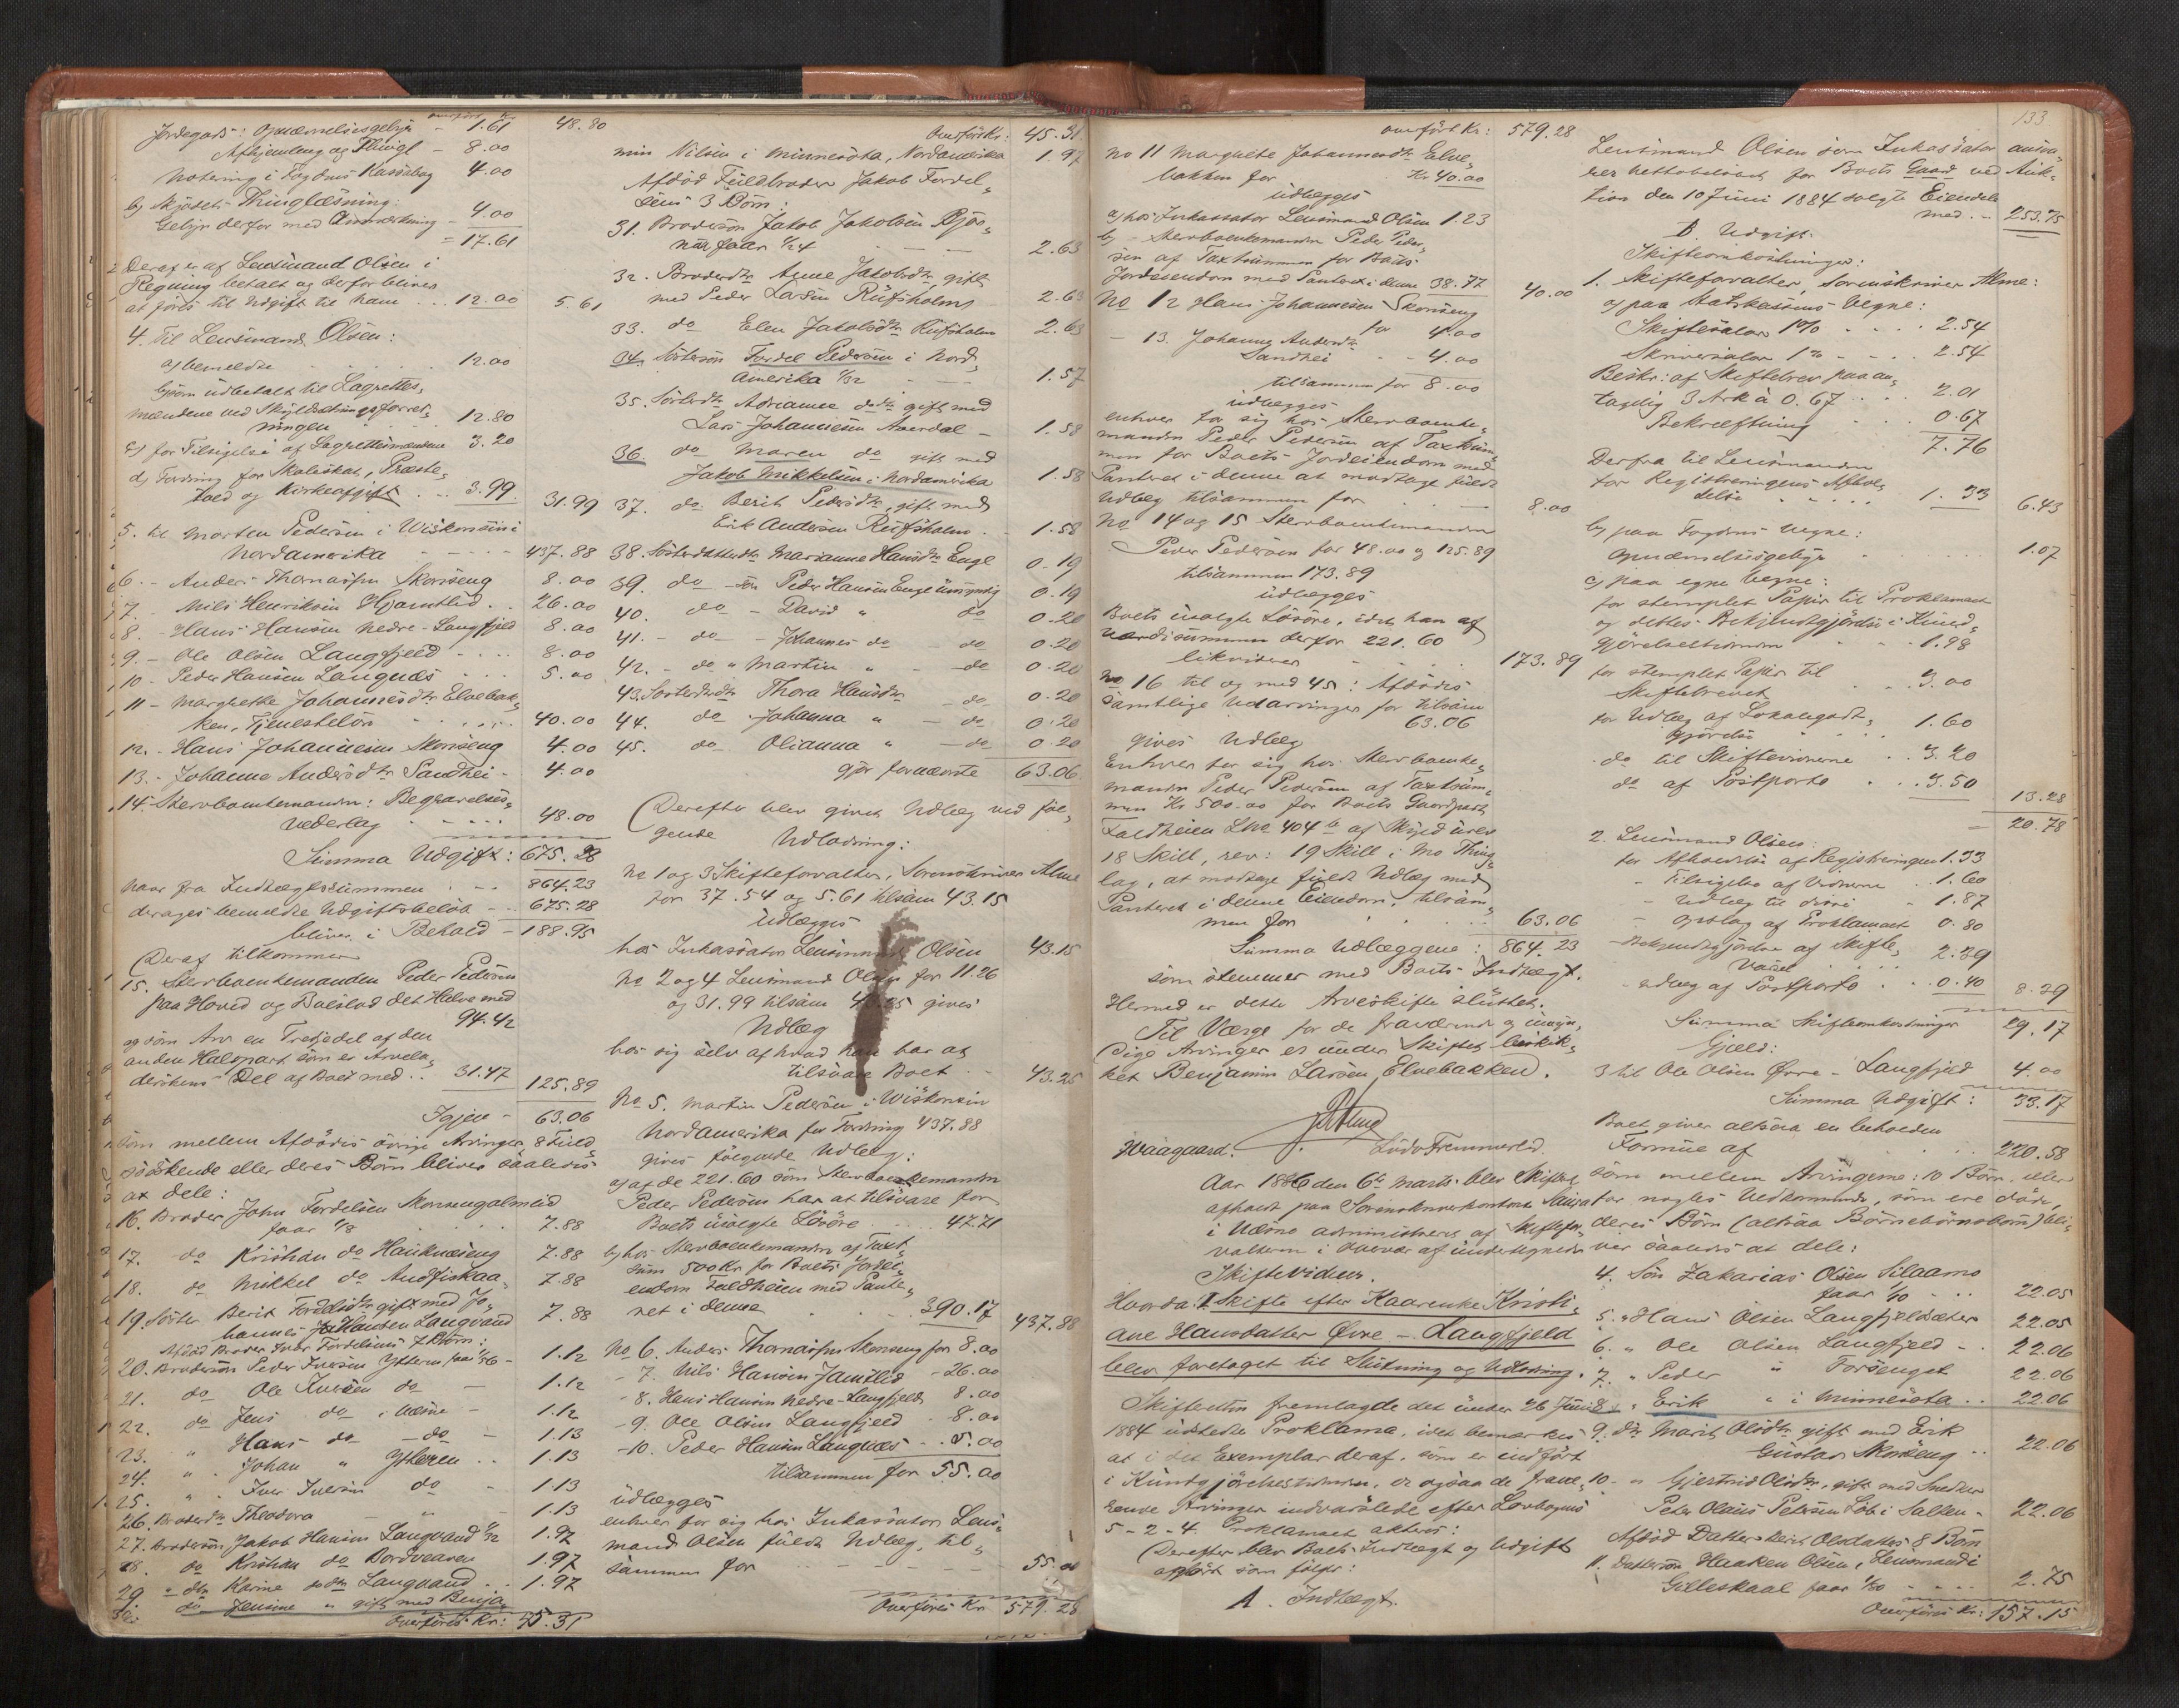 overført Kr.
Jordegods: Opnævnelsesgebyr - 1.61 48.80
Afhjemling og Thingl - 8.00
Notering i Fogdens Kassabog 4.00
b) Skjødets Thinglæsning:
Gebyr derfor med Anmærkning - 4.00
= 17.61
Deraf er af Lensmand Olsen i
Regning betalt og derfor blives
at føres til Udgift til ham .. 12.00 5.61
4. Til Lensmand Olsen:
a) bemeldte . . . . 12.00
b) som udbetalt til Lagrettes,
mændene ved Skyldsætningsforret,
ningen . . 12.80
c) for Tilsigelse af Lagrettesmændene 3.20
d) Fordring for Skoleskat, Præste,
told og Kirkeafgift . . 3.99 31.99
5. til Morten Pedersen i Wiskonsin i
Nordamerika - - - - 437.88
6. - Anders Thomassen Skonseng 8.00
7. Nils Henriksen Hjamtlid . . 26.00
8. - Hans Hansen Nedre-Langfjeld 8.00
9. - Ole Olsen Langfjeld . . . . 8.00
10 - Peder Hansen Langnæs . . . 5.00
11 - Margrethe Johannesdtr Elvebak,
ken, Tjenesteløn . . . . 40.00
12. - Hans Johannesen Skonseng 4.00
13. - Johanne Andersdtr Sandhei - 4.00
14. Stervboenkemanden: Begravelses,
vederlag . . . . . 48.00
Summa Udgift: 675.28
Naar fra Indtægtssummen . - - 864.23
drages bemeldte Udgiftsbeløb - . 675.28
bliver i Behold - 188.95
Deraf tilkommer
15. Stervboenkemanden Peder Pedersen
paa Hoved og Boeslod det Halve med
94.42
og som Arv en Tredjedel af den
anden Halvpart som er Arvela,
derskens Del af Boet med .. 31.47 125.89
Igjen - 63.06
som mellem Afdødes øvrige Arvinger 8 Fuld,
søskende eller deres Børn bliver saaledes
at dele:
16. Broder John Fordelsen Skonsengalmlid
faar 1/8 . . . . 7.88
17. do Kristian do Hauknæseng 7.88
18. do Mikkel do Andfiskaa, 7.88
19. Søster Berit Fordelsdtr gift med Jo,
hannes Hansen Langvand 7.88
Afdød Broder Iver Fordelsens 7 Børn:
20. Brodersøn Peder Iversen Yttern faar 1/56 - 1.12
21. do Ole Iversen do - 1.12
22. do Jens do i Næsne - 1.12
23. " Hans do - do - 1.13
24. " Johan " Ytteren .. 1.13
25. " Iver Iversen do - 1.13
26. Broderdtr Theodora - " - 1.13
27. Brodersøn Jakob Hansen Langvand 1/32 1.97
28. do Kristian do Bordvearen 1.97
29. " dtr Karine do dtr Langvand . . 1.97
30. do Jensine " gift med Benja,
Overføres Kr: 45.31
Overført Kr: 45.31
min Nilsen i Minnesota, Nordamerika 1.97
Afdød Fuldbroder Jakob Fordel,
sens 3 Børn:
31. Brodersøn Jakob Jakobsen Bjør,
nær faar 1/24 - - 2.63
32. Broderdtr Anne Jakobsdtr, gift
med Peder Larsen Rufsholm 2.63
33. do Elen Jakobsdtr Rufsholm 2.63
34. Søstersøn Fordel Pedersen i Nord,
amerika 1/32 - - 1.57
35. Søsterdtr Adrianne do dtr gift med
Lars Johannesen Averdal - 1.58
36. do Maren do gift med
Jakob Mikkelsen i Nordamerika 1.58
37. do Berit Pedersdtr, gift med
Erik Andersen Rufsholm - 1.58
38. Søsterdatterdtr Marianne Hansdtr Enge 0.19
39. do - søn Peder Hansen Enge umyndig 0.19
40. do - David " do 0.20
41. - do - Johannes do - do 0.20
42. - do " Martin " - do 0.20
43. Søsterdrdtr Thora Hansdtr - do 0.20
44. do Johanna " - do 0.20
45. do Olianna " - do 0.20
gjør forænte 63.06
Derefter blev givet Udlæg ved føl,
gende Udlodning:
No 1 og 3 Skifteforvalter, Sorenskriver Alme
for 37.54 og 5.61 tilsam 43.15
udlægges
hos Inkassator Lensmand Olsen 43.15
No 2 og 4 Lensmand Olsen for 11.26
og 31.99 tilsam 43.25 gives
Udlæg
hos sig selv af hvad han har at
tilsvare Boet . - 43.25
No 5. Martin Pedersen i Wiskonsin
Nordamerika for Fordring 437.88
gives følgende Udlæg:
a) af de 221.60 som Stervboenkemanden
Peder Pedersen har at tilsvare for
Boets usolgte Løsøre . . . . 47.71
b) hos Stervboenkemanden af Taxt,
sum 500 Kr. for Boets Jordei,
endom Foldheien med Pante,
ret i denne . . 390.17 437.88
No 6. Anders Thomassen Skonseng for 8.00
- 7. Nils Hansen Jamtlid - 26.00
- 8. Hans Hansen Nedre-Langfjeld 8.00
- 9. Ole Olsen Langfjeld . 8.00
- 10. Peder Hansen Langnæs . . 5.00
tilsammen for 55.00
udlægges
enhver for sig hos Inkassator Lens,
mand Olsen fuldt Udlæg, til,
sammen for - - - - 55.00
Overføres Kr 579.28
overført Kr: 579.28
No 11 Margrethe Johannesdtr Elve,
bakken for Kr 40.00
udlægges
a) hos Inkassator Lensmand Olsen 1.23
b) - Stervboenkemanden Peder Peder,
sen af Taxtsummen for Boets
Jordeiendom med Panteret i denne 38.77 40.00
No 12 Hans Johannesen Skonseng
for 4.00
- 13. Johanne Andersdtr
Sandhei - - 4.00
tilsammen for 8.00
udlægges
enhver for sig hos Stervboenke,
manden Peder Pedersen af Taxtsum,
men for Boets Jordeiendom med
Panteret i denne at modtage fuldt
Udlæg tilsammen for . . - 8.00
No 14 og 15 Stervboenkemanden
Peder Pedersen for 48.00 og 125.89
tilsammen 173.89
udlægges
Boets usolgte Løsøre, idet han af
Værdisummen derfor 221.60
likviderer - - - : 173.89
No 16 til og med 45: Afdødes
samtlige Udarvinger for tilsam
63.06
gives Udlæg
Enhver for sig hos Stervboenke,
manden Peder Pedersen af Taxtsum,
men Kr 500.00 for Boets Gaardpart
Foldheien Lno 404 b af Skyld urev
18 Skill, rev: 19 Skill i Mo Thing,
lag, at modtage fuldt Udlæg med
Panteret i denne Eiendom, tilsam,
men for . . . 63.06
Summa Udlæggene : 864.23
som stemmer med Boets Indtægt.
Hermed er dette Arveskifte sluttet.
Til Værge for de fraværende og umyn,
dige Arvinger er under Skiftet beskik,
ket Benjamin Larsen Elvebakken.
Waagaard. Ludv Fremmerlid.
Aar 1886 den 6te Marts blev Skifteret
afholdt paa Sorenskriverkontoret Saura
i Næsne administreret af Skiftefor,
valteren i Overvær af undertegnede
Skiftevidner.
Hvorda: Skifte efter Kaarenke Kristi,
ane Hansdatter Øvre-Langfjeld
blev foretaget til Slutning og Udlodning.
Skifteretten fremlagde det under 26 Juni
1884 udstedte Proklama, idet bemærkes
at i det Exemplar deraf, som er indført
i Kundgjørelsestidenden, er ogsaa de fravæ,
rende Arvinger indvarslede efter Lovbogens
5-2-4. Proklamaet akteres:
Derefter blev Boets Indtægt og Udgift
opført som følger:
A. Indtægt.
133
Lensmand Olsen som Inkassator ansva,
rer Nettobeløbet for Boets Gaard ved Auk,
tion den 10 Juni 1884 solgte Eiendele
med . - 253.75
B. Udgift.
Skifteomkostninger:
1. Skifteforvalter, Sorenskriver Alme:
a) paa Statskassens Vegne:
Skiftesalær 1% . . . . 2.54
Skriversalær 1% - - . . 2.54
Beskr: af Skiftebrev paa an,
tagelig 3 Ark à 0.67 . . . 2.01
Bekræftning . . . 0.67
7.76
Derfra til Lensmanden
for Registreringens Afhol,
delse . . . . 1.33 6.43
b) paa Fogdens Vegne:
Opnævnelsesgebyr . . . . 1.07
c) paa egne Vegne:
for stemplet Papir til Proklamaet
og dettes Bekjendtgjørelse i Kund,
gjørelsestidenden - - 1.98
for stemplet Papir til
Skiftebrevet . . . 3.00
for Udlæg af Lokalgodt,
gjørelse . . . . 1.60
do til Skiftevidnerne . . 3.20
do af Postporto . . . 3.50 13.28
= 20.78
2. Lensmand Olsen:
for Afholdelse af Registreringen 1.33
- Tilsigelse af Vidnerne . . 1.60
- Udlæg til disse . 1.87
- Opslag af Proklamaet 0.80
- Bekjendtgjørelse af Skifte,
Varsel . . . . 2.39
- Udlæg af Postporto . . 0.40 8.39
Summa Skifteomkostninger 29.17
Gjæld:
3 til Ole Olsen Øvre-Langfjeld 4.00
Summa Udgift: 33.17
Boet giver altsaa en beholden
Formue af . . . 220.58
som mellem Arvingerne: 10 Børn, eller
for nogles Vedkommende, som ere døde,
deres Børn (altsaa Børnebørnsbørn) bli,
ver saaledes at dele:
4. Søn Zakarias Olsen Silaamo
faar 1/10 . . 22.05
5. " Hans Olsen Langfjeldsæter 22.05
6. " Ole Olsen Langfjeld - . 22.06
7. " Peder " Forsenget 22.06
8. " Erik " i Minnesota . . 22.06
9. Dtr Marit Olsdtr gift med Erik
Gustav Skonseng .. 22.06
10 - " Gjertrud Olsdtr, gift med Snedker
Peter Olaus Petersen Løb i Salten - 22.06
Afdød Datter Berit Olsdatters 8 Børn
11. Dattersøn Haaken Olsen, Lensmand i
Gilleskaal faar 1/80 - . . . 2.75
Overføres Kr: 157.15